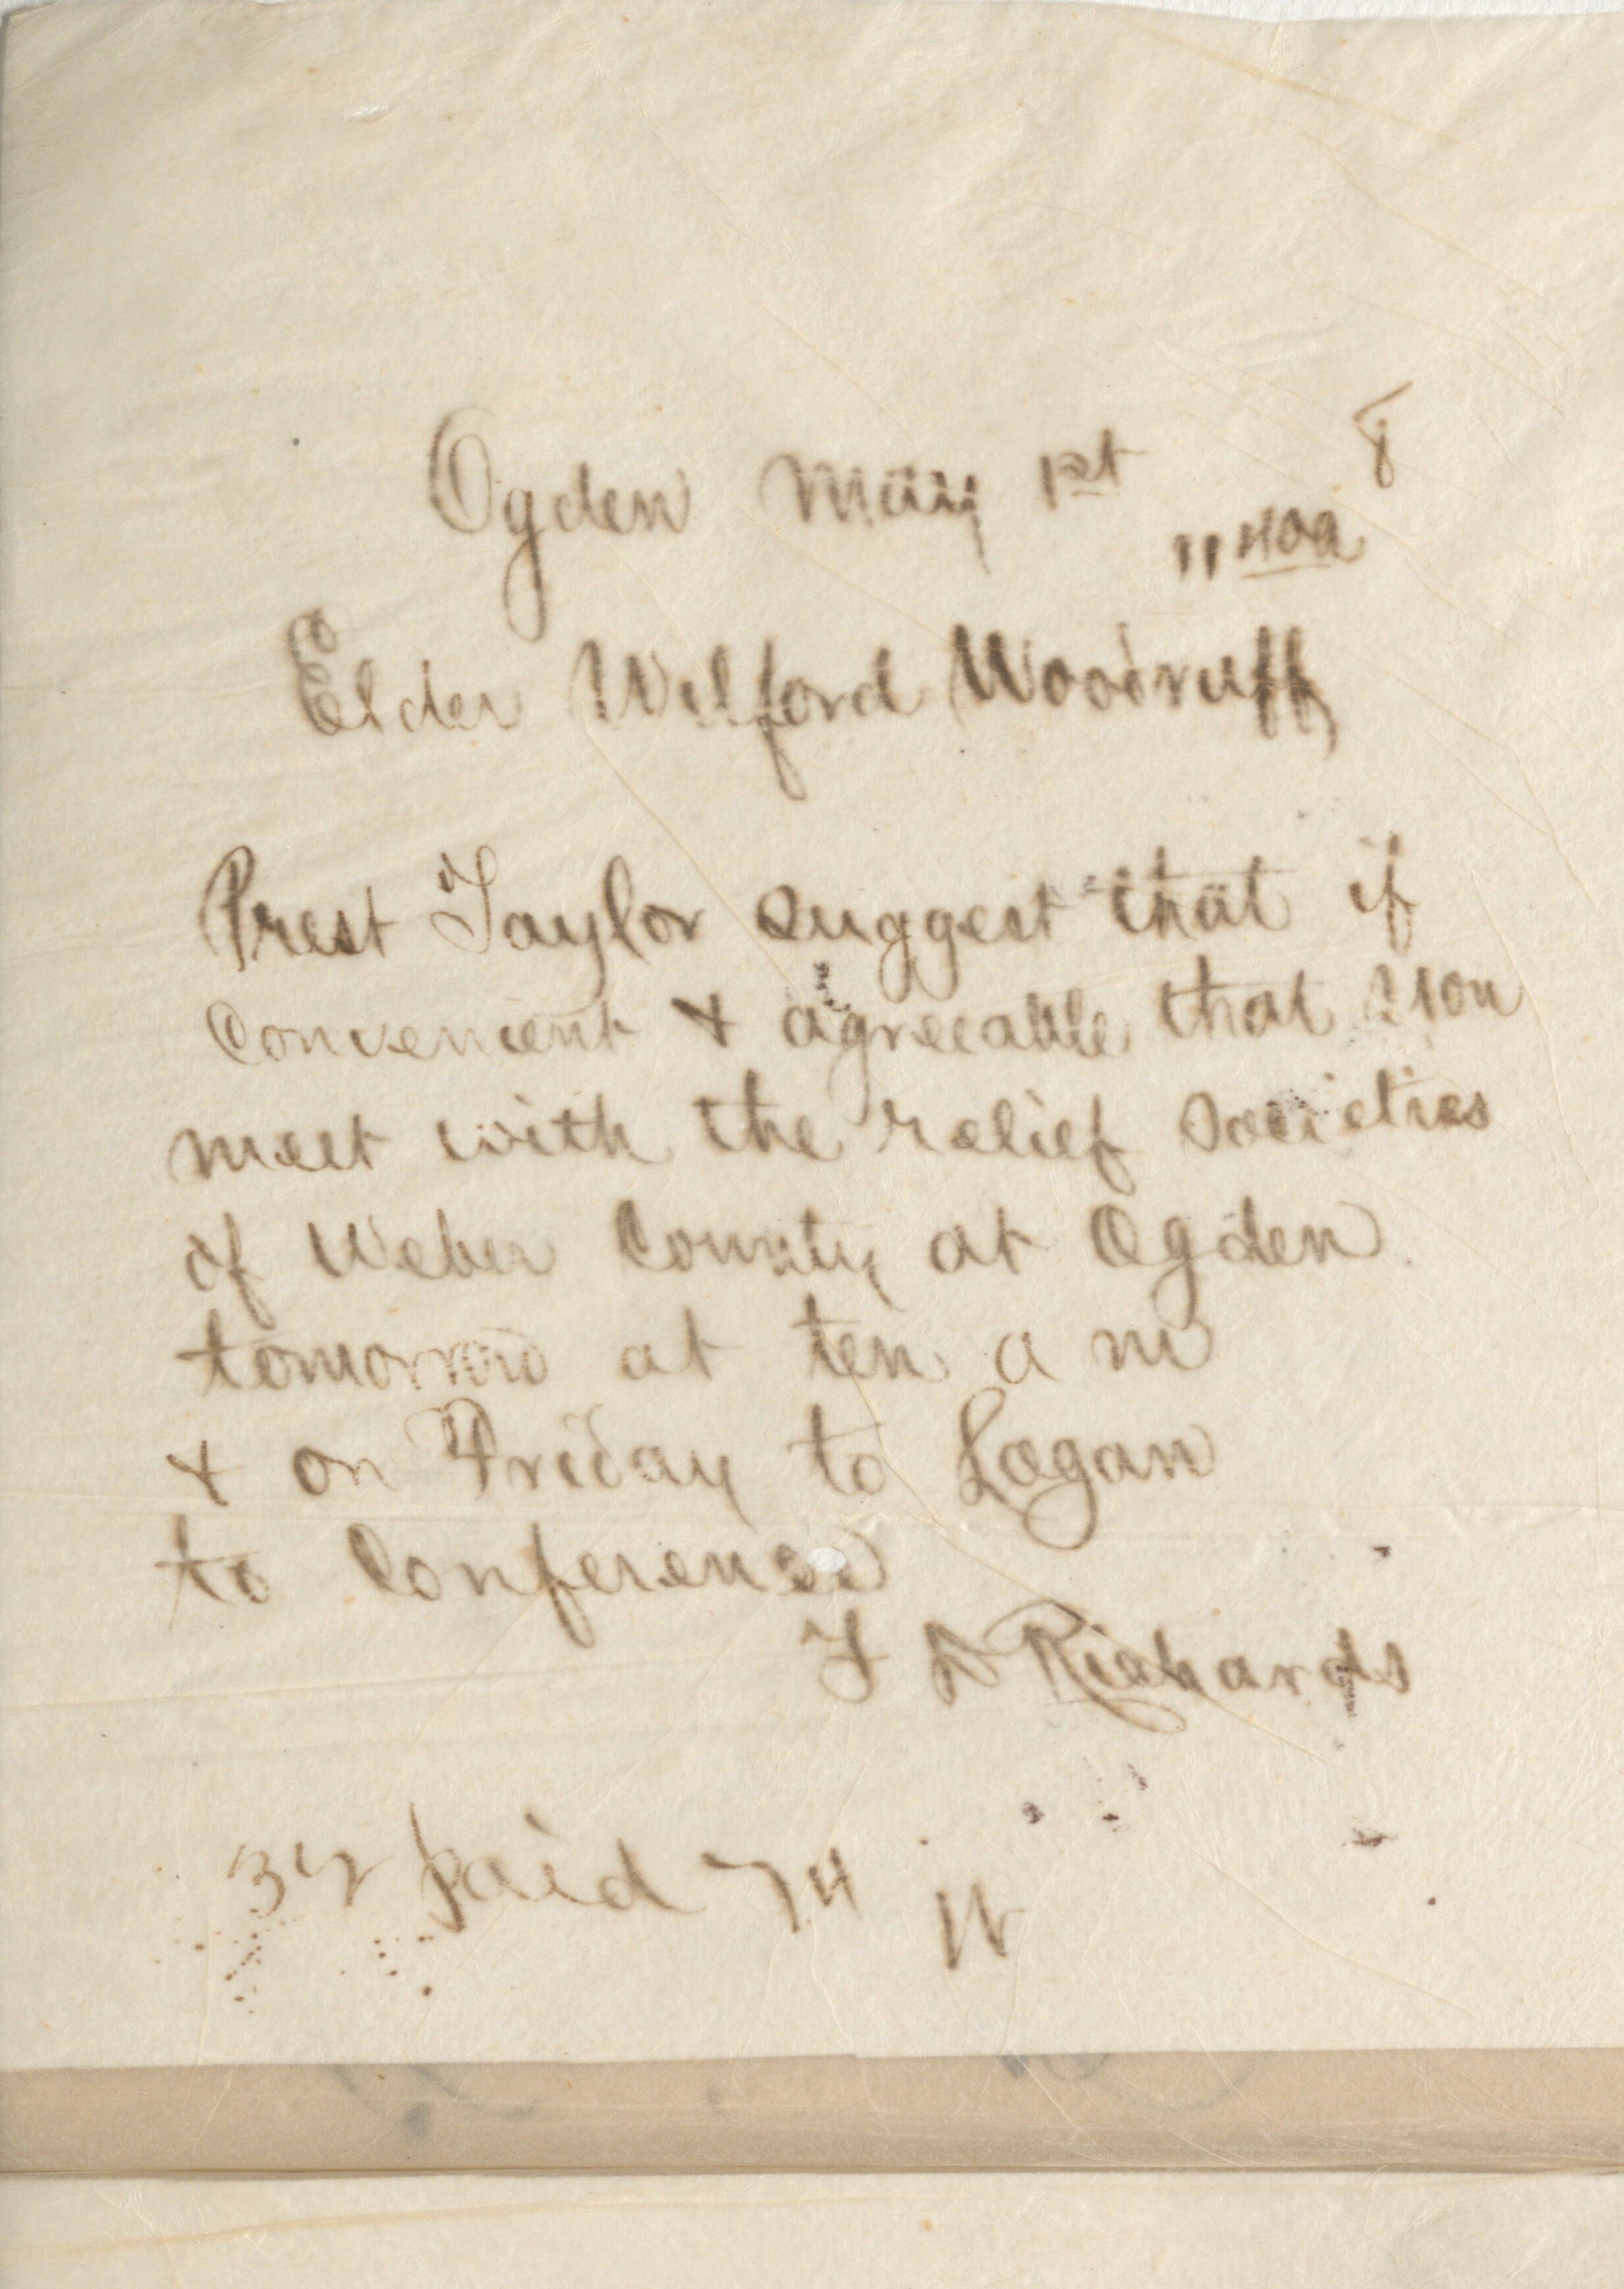 Ogden May 1st 8
11 40a
Elder Wilford Woodruff
Prest Taylor suggest that if
convenient & agreeable that you
meet with the relief societies
of Weber County at Ogden
tomorrow at ten a m
& on Friday to Logan
to Conference
F D Richards
32 paid 74